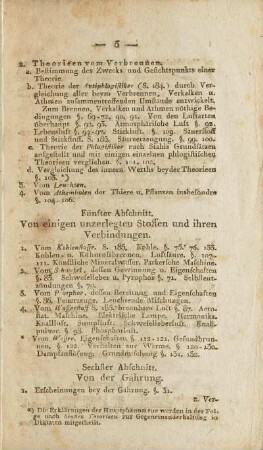 — 5 —
2. Theorieen vom Verbrennen.
a. Bestimmung des Zwecks und Gesichtspunkts einer
Theorie.
b. Theorie der Antiphlogistiker (S. 184.) durch Ver-
gleichung aller beym Verbrennen, Verkalken u.
Athmen zusammentreffenden Umstände entwickelt.
Zum Brennen, Verkalken und Athmen nöthige Bedin-
gungen §. 69-72, 90, 91. Von den Luftarten
überhaupt §. Atmosphärische Luft §. 92.
Lebensluft §. 93-92. Stickluft. §. Sauerstoff
und Stickstoff. S. 185. Säurerzeugung. §. 99. 100.
c. Theorie der Phlogistiker nach Stahls Grundsätzen
aufgestellt und mit einigen einzelnen phlogistischen
Theorieen verglichen §. 101, 102.
d. Vergleichung des innern Werths beyder Theorieen
§. 103. *)
3. Vom Leuchten.
4. Vom Athemholen der Thiere u. Pflanzen insbesondre
§. 104-106.
Fünfter Abschnitt.
Von einigen unzerlegten Stoffen und ihren
Verbindungen.
1. Vom Kohlenstoffe. S. 185. Kohle. §. 75. 76. 185.
Kohlen u. Kohlenbrennen. Luftsäure. §. 107-
111. Künstliche Mineralwasser. Parkersche Maschine.
2. Vom Schwefel, dessen Gewinnung u. Eigenschaften
§. 83. Schwefelleber u. Pyrophor §. 72. Selbstent-
zündungen §. 70.
3. Vom Phosphor, dessen Bereitung, und Eigenschaften
§. 86. Feuerzeuge. Leuchtende Mischungen.
4. Vom Wasserstoff S. 185. brennbare Luft §. 87. Aero-
stat. Maschine. Elektrische Lampe, Harmonika.
Knallluft. Sumpfluft. Schwefelleberluft. Knall-
pulver. §. 93. Phosphorluft.
5. Vom Wasser. Eigenschaften §. 112-121. Gefundbrun-
nen §. 122. Verhalten zur Wärme. §. 130-150.
Dampfauflösung. Grundmischung §. 151. 152.
Sechster Abschnitt.
Von der Gährung.
1. Erscheinungen bey der Gährung. §. 31.
2. Ver-
*) Die Erklärungen der Hauptphänomene werden in der Fol-
ge nach beyden Theorieen zur Gegeneinanderhaltung in
Dictaten mitgetheilt.